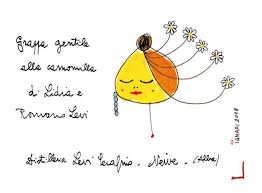 Grappa gentile
alla camomilla
di Lidia e
Romano Levi
Distilleria Levi Serafino - Neive - (Alba)